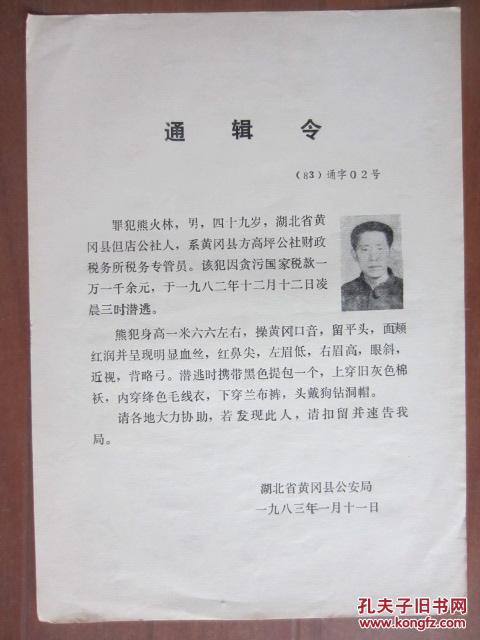 通辑令
（83）通字02号
罪犯熊火林，男，四十九岁，湖北省黄
冈县但店公社人，系黄冈县方高坪公社财政
税务所税务专管员。该犯因贪污国家税款一
万一千余元，于一九八二年十二月十二日凌
晨三时潜逃。
熊犯身高一米六六左右，操黄冈口音，留平头，面颊
红润并呈现明显血丝，红鼻尖，左眉低，右眉高，眼斜，
近视，背略弓。潜逃时携带黑色提包一个，上穿旧灰色棉
袄，内穿绛色毛线衣，下穿兰布裤，头戴狗钻洞帽。
请各地大力协助，若发现此人，请扣留并速告我
局。
湖北省黄冈县公安局
一九八三年一月十一日
孔夫子旧书网
www.kongfz.com